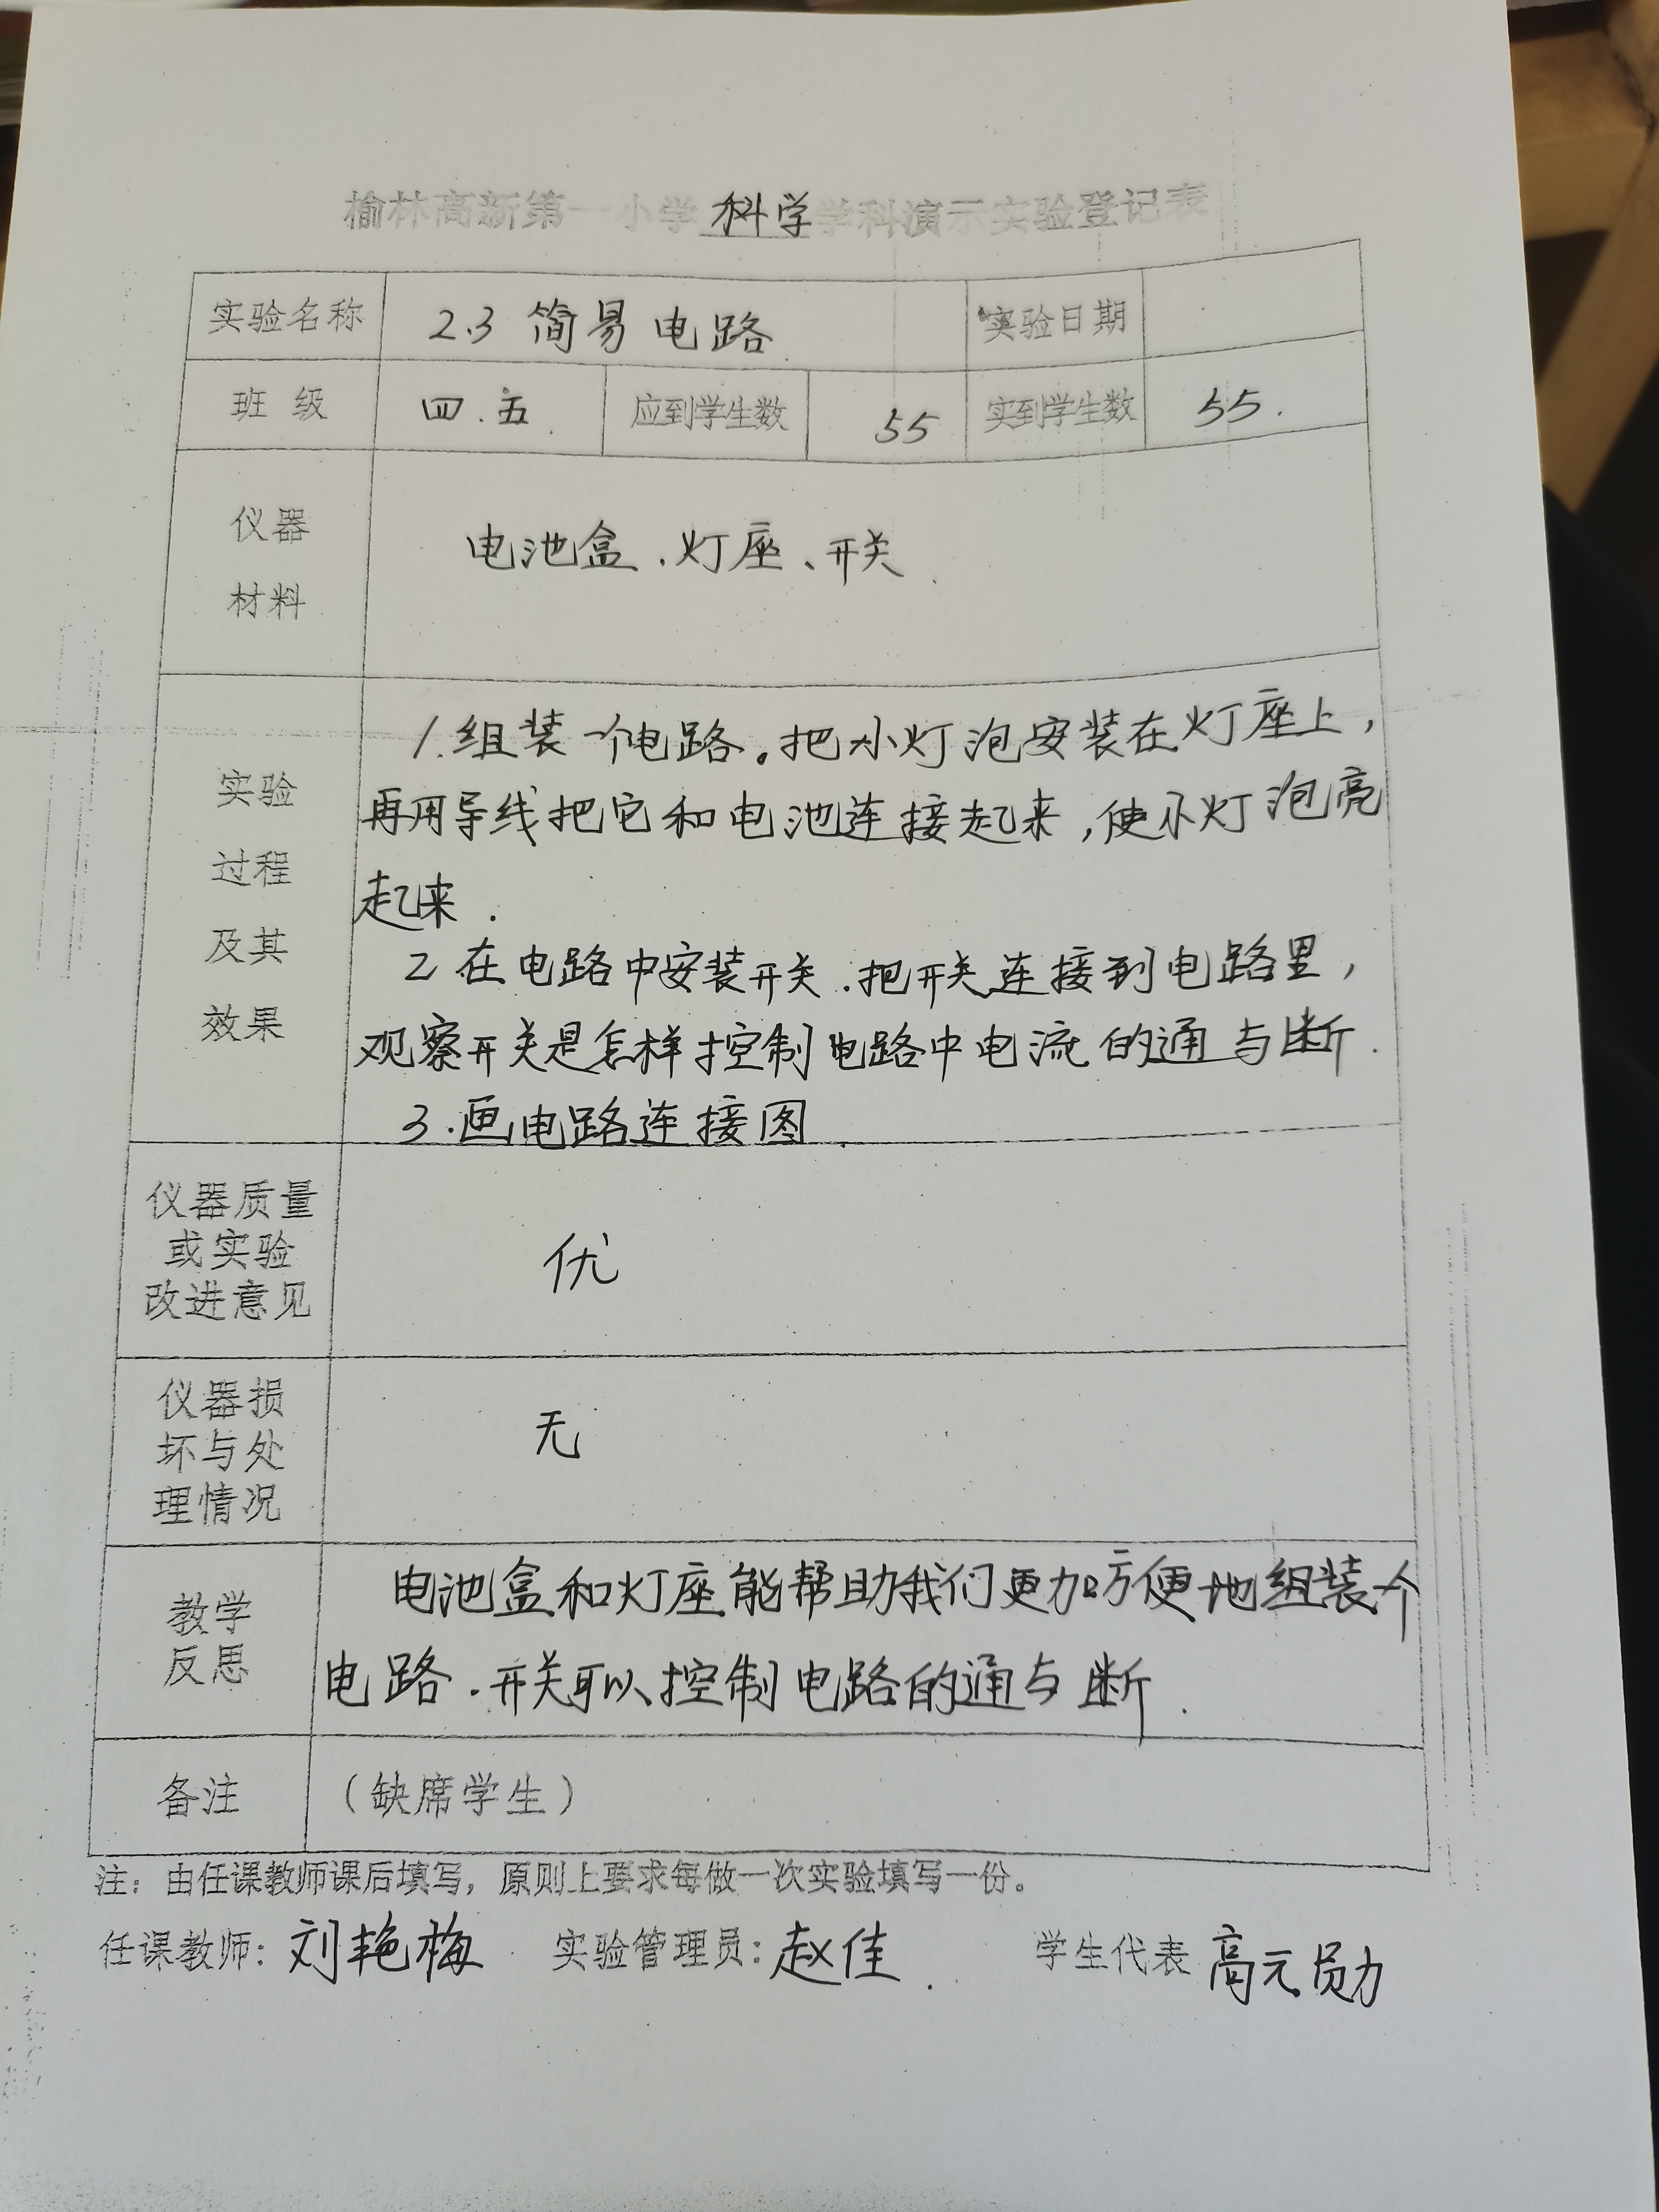 榆林高新第一小学 科学 学科演示实验登记表
实验名称 2.3 简易电路 实验日期
班 级 四.五 应到学生数 55 实到学生数 55.
仪器
材料
电池盒.灯座、开关.
实验
过程
及其
效果
1.组装一个电路。把小灯泡安装在灯座上，
再用导线把它和电池连接起来,使小灯泡亮
起来.
2 在电路中安装开关.把开关连接到电路里，
观察开关是怎样控制电路中电流的通与断.
3.画电路连接图.
仪器质量
或实验
改进意见
优
仪器损
坏与处
理情况
无
教学
反思
电池盒和灯座能帮助我们更加方便地组装个
电路.开关可以控制电路的通与断.
备注 （缺席学生）
注：由任课教师课后填写，原则上要求每做一次实验填写一份。
任课教师: 刘艳梅 实验管理员: 赵佳. 学生代表 高元勋